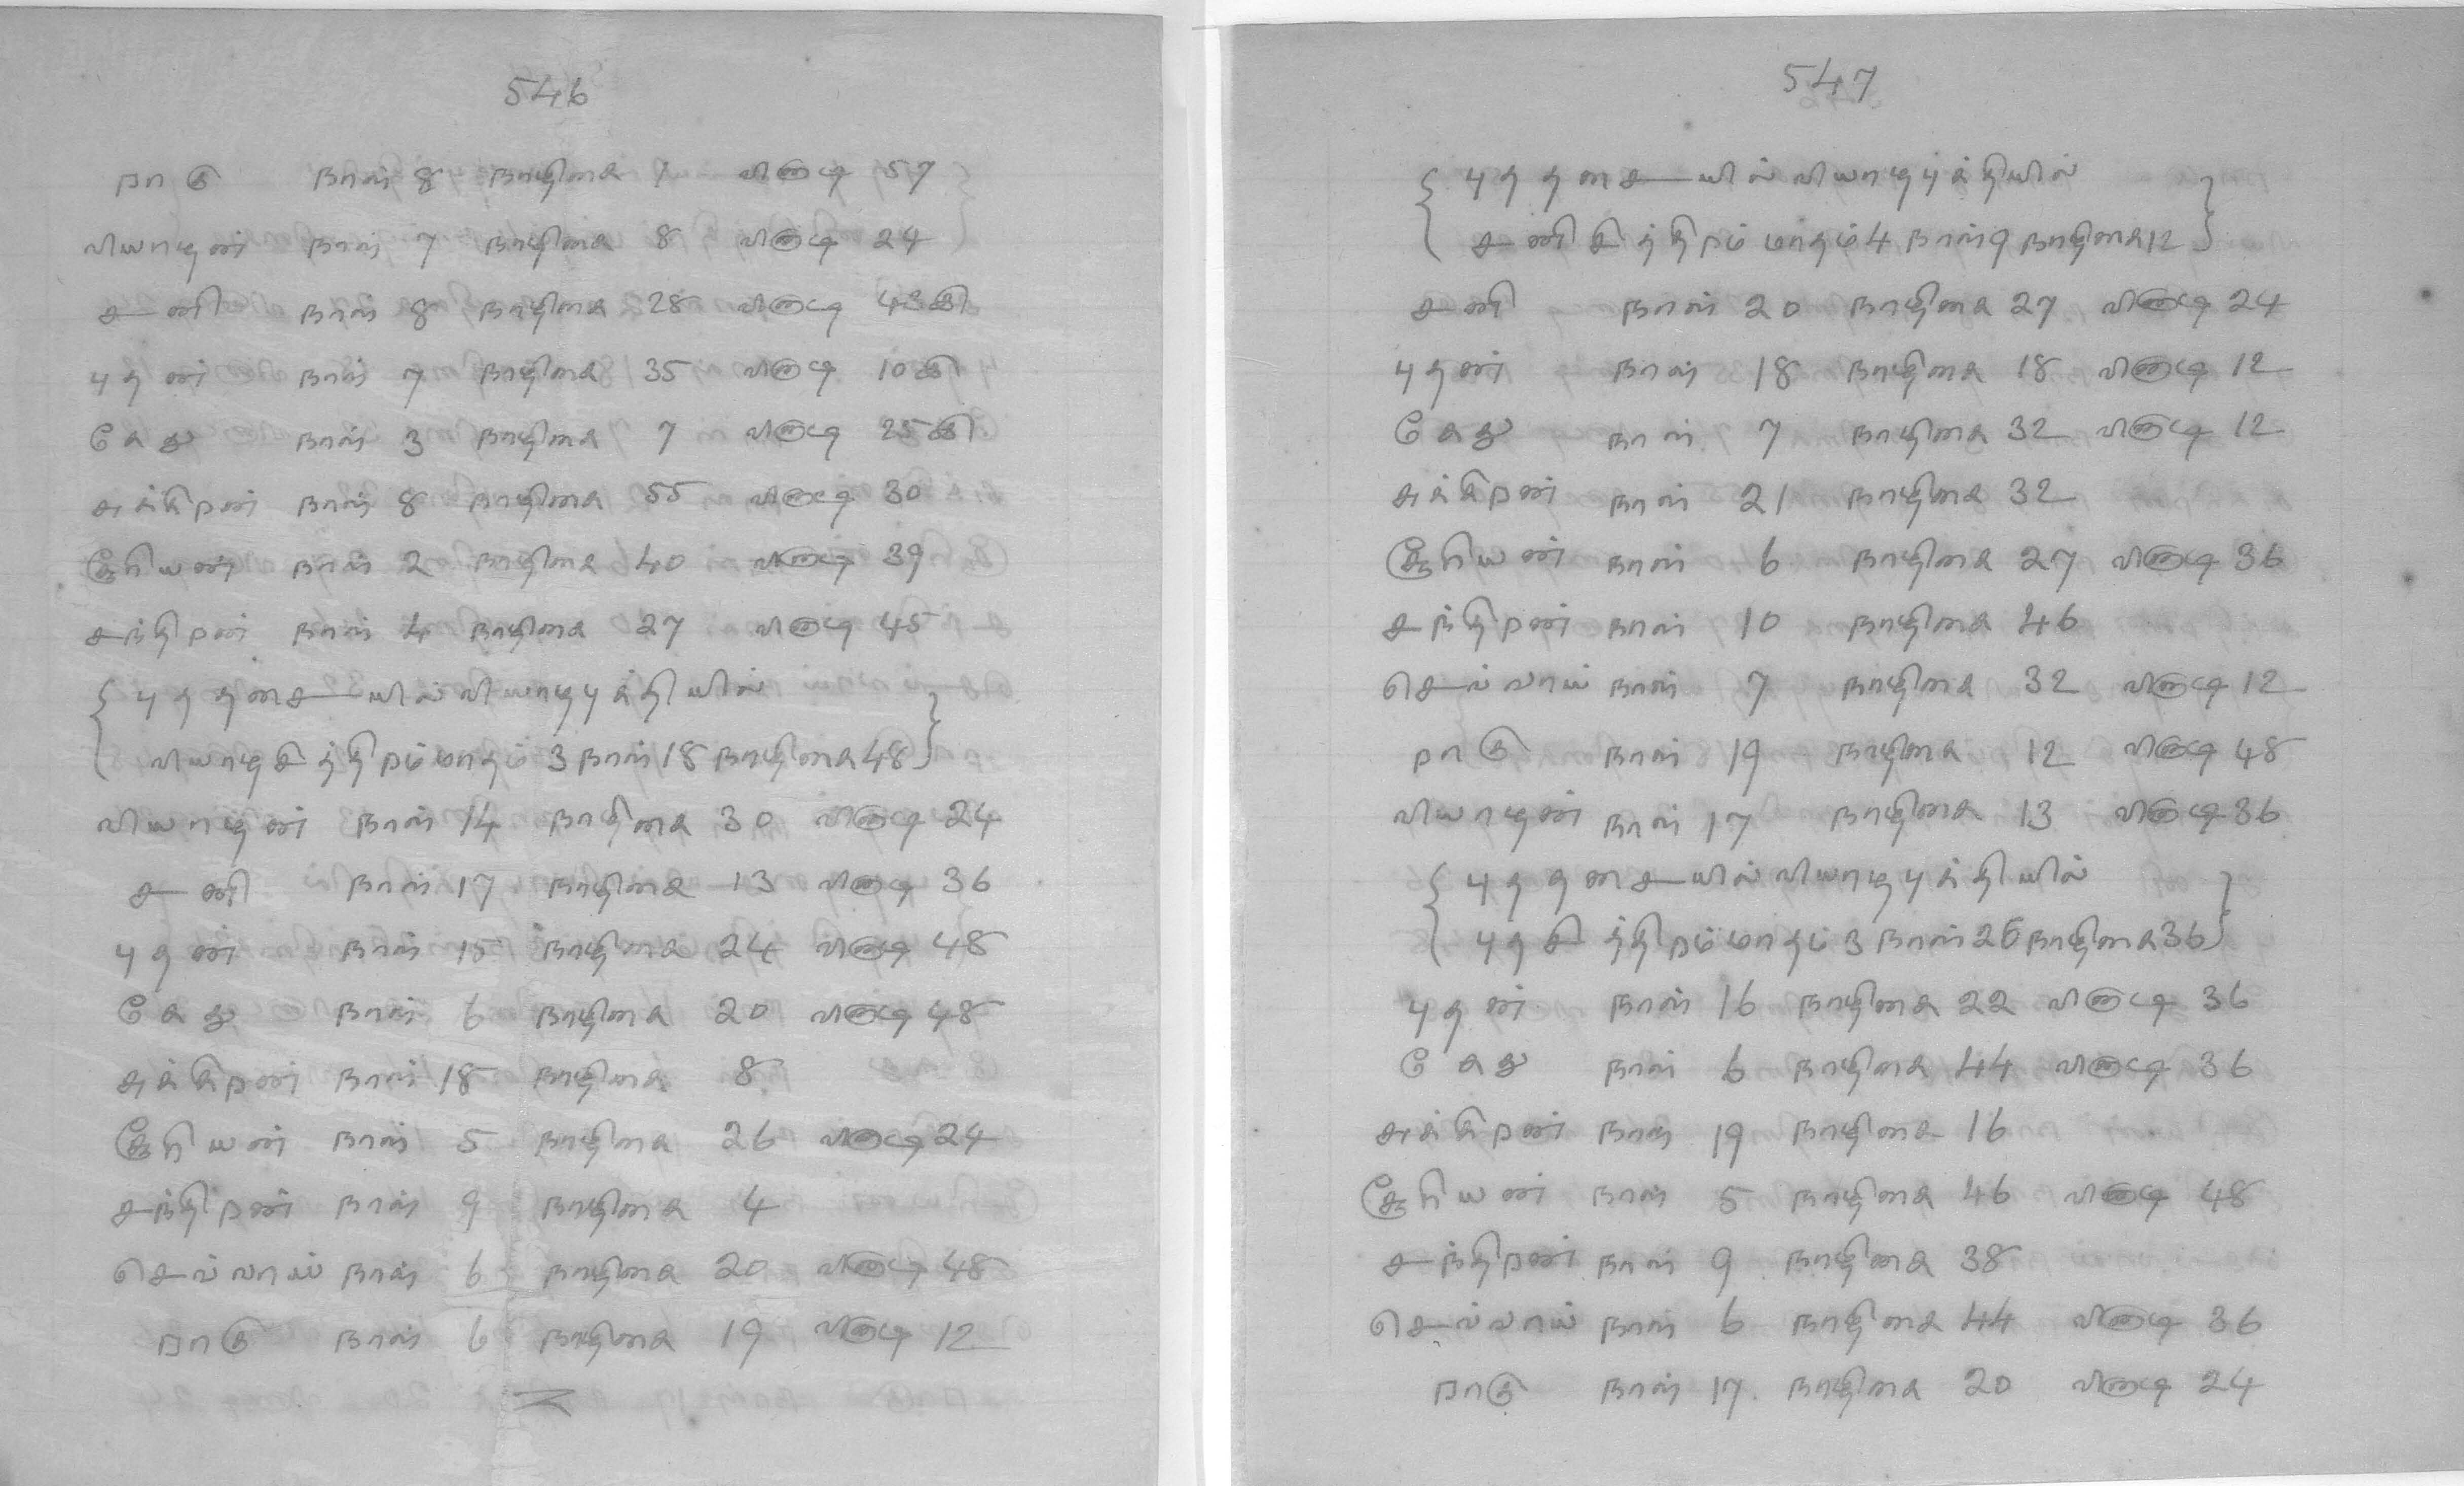 546
ராகு நாள் 8 நாழிகை 1 வினாடி 57
வியாழன் நாள் 7 நாழிகை 8 வினாடி 24
சனி நாள் 8 நாழிகை 28 வினாடி
புதன் நாள் 7 நாழிகை 35 வினாடி
கேது நாள் 3 நாழிகை 7 வினாடி
சுக்கிரன் நாள் 8 நாழிகை 55 வினாடி 30
சூரியன் நாள் 2 நாழிகை 40 வினாடி 39
சந்திரன் நாள் 4 நாழிகை 27 வினாடி 45
{ புத தசையில் வியாழ புக்தியில்
வியாழ சித்திரம் மாதம் 3 நாள் 18 நாழிகை 48 }
வியாழன் நாள் 14 நாழிகை 30 வினாடி 24
சனி நாள் 17 நாழிகை 13 வினாடி 36
புதன் நாள் 15 நாழிகை 24 வினாடி 48
கேது நாள் 6 நாழிகை 20 வினாடி 48
சுக்கிரன் நாள் 18 நாழிகை 8
சூரியன் நாள் 5 நாழிகை 26 வினாடி 24
சந்திரன் நாள் 9 நாழிகை 4
செவ்வாய் நாள் 6 நாழிகை 20 வினாடி 48
ராகு நாள் 6 நாழிகை 19 வினாடி 12
547
{ புத தசையில் வியாழ புக்தியில்
சனி சித்திரம் மாதம் 4 நாள் 9 நாழிகை 12 }
சனி நாள் 20 நாழிகை 27 வினாடி 24
புதன் நாள் 18 நாழிகை 18 வினாடி 12
கேது நாள் 7 நாழிகை 32 வினாடி 12
சுக்கிரன் நாள் 21 நாழிகை 32
சூரியன் நாள் 6 நாழிகை 27 வினாடி 36
சந்திரன் நாள் 10 நாழிகை 46
செவ்வாய் நாள் 7 நாழிகை 32 வினாடி 12
ராகு நாள் 19 நாழிகை 12 வினாடி 48
வியாழன் நாள் 17 நாழிகை 13 வினாடி 36
{ புத தசையில் வியாழ புக்தியில்
புத சித்திரம் மாதம் 3 நாள் 26 நாழிகை 36 }
புதன் நாள் 16 நாழிகை 22 வினாடி 36
கேது நாள் 6 நாழிகை 44 வினாடி 36
சுக்கிரன் நாள் 19 நாழிகை 16
சூரியன் நாள் 5 நாழிகை 46 வினாடி 48
சந்திரன் நாள் 9 நாழிகை 38
செவ்வாய் நாள் 6 நாழிகை 44 வினாடி 36
ராகு நாள் 17 நாழிகை 20 வினாடி 24